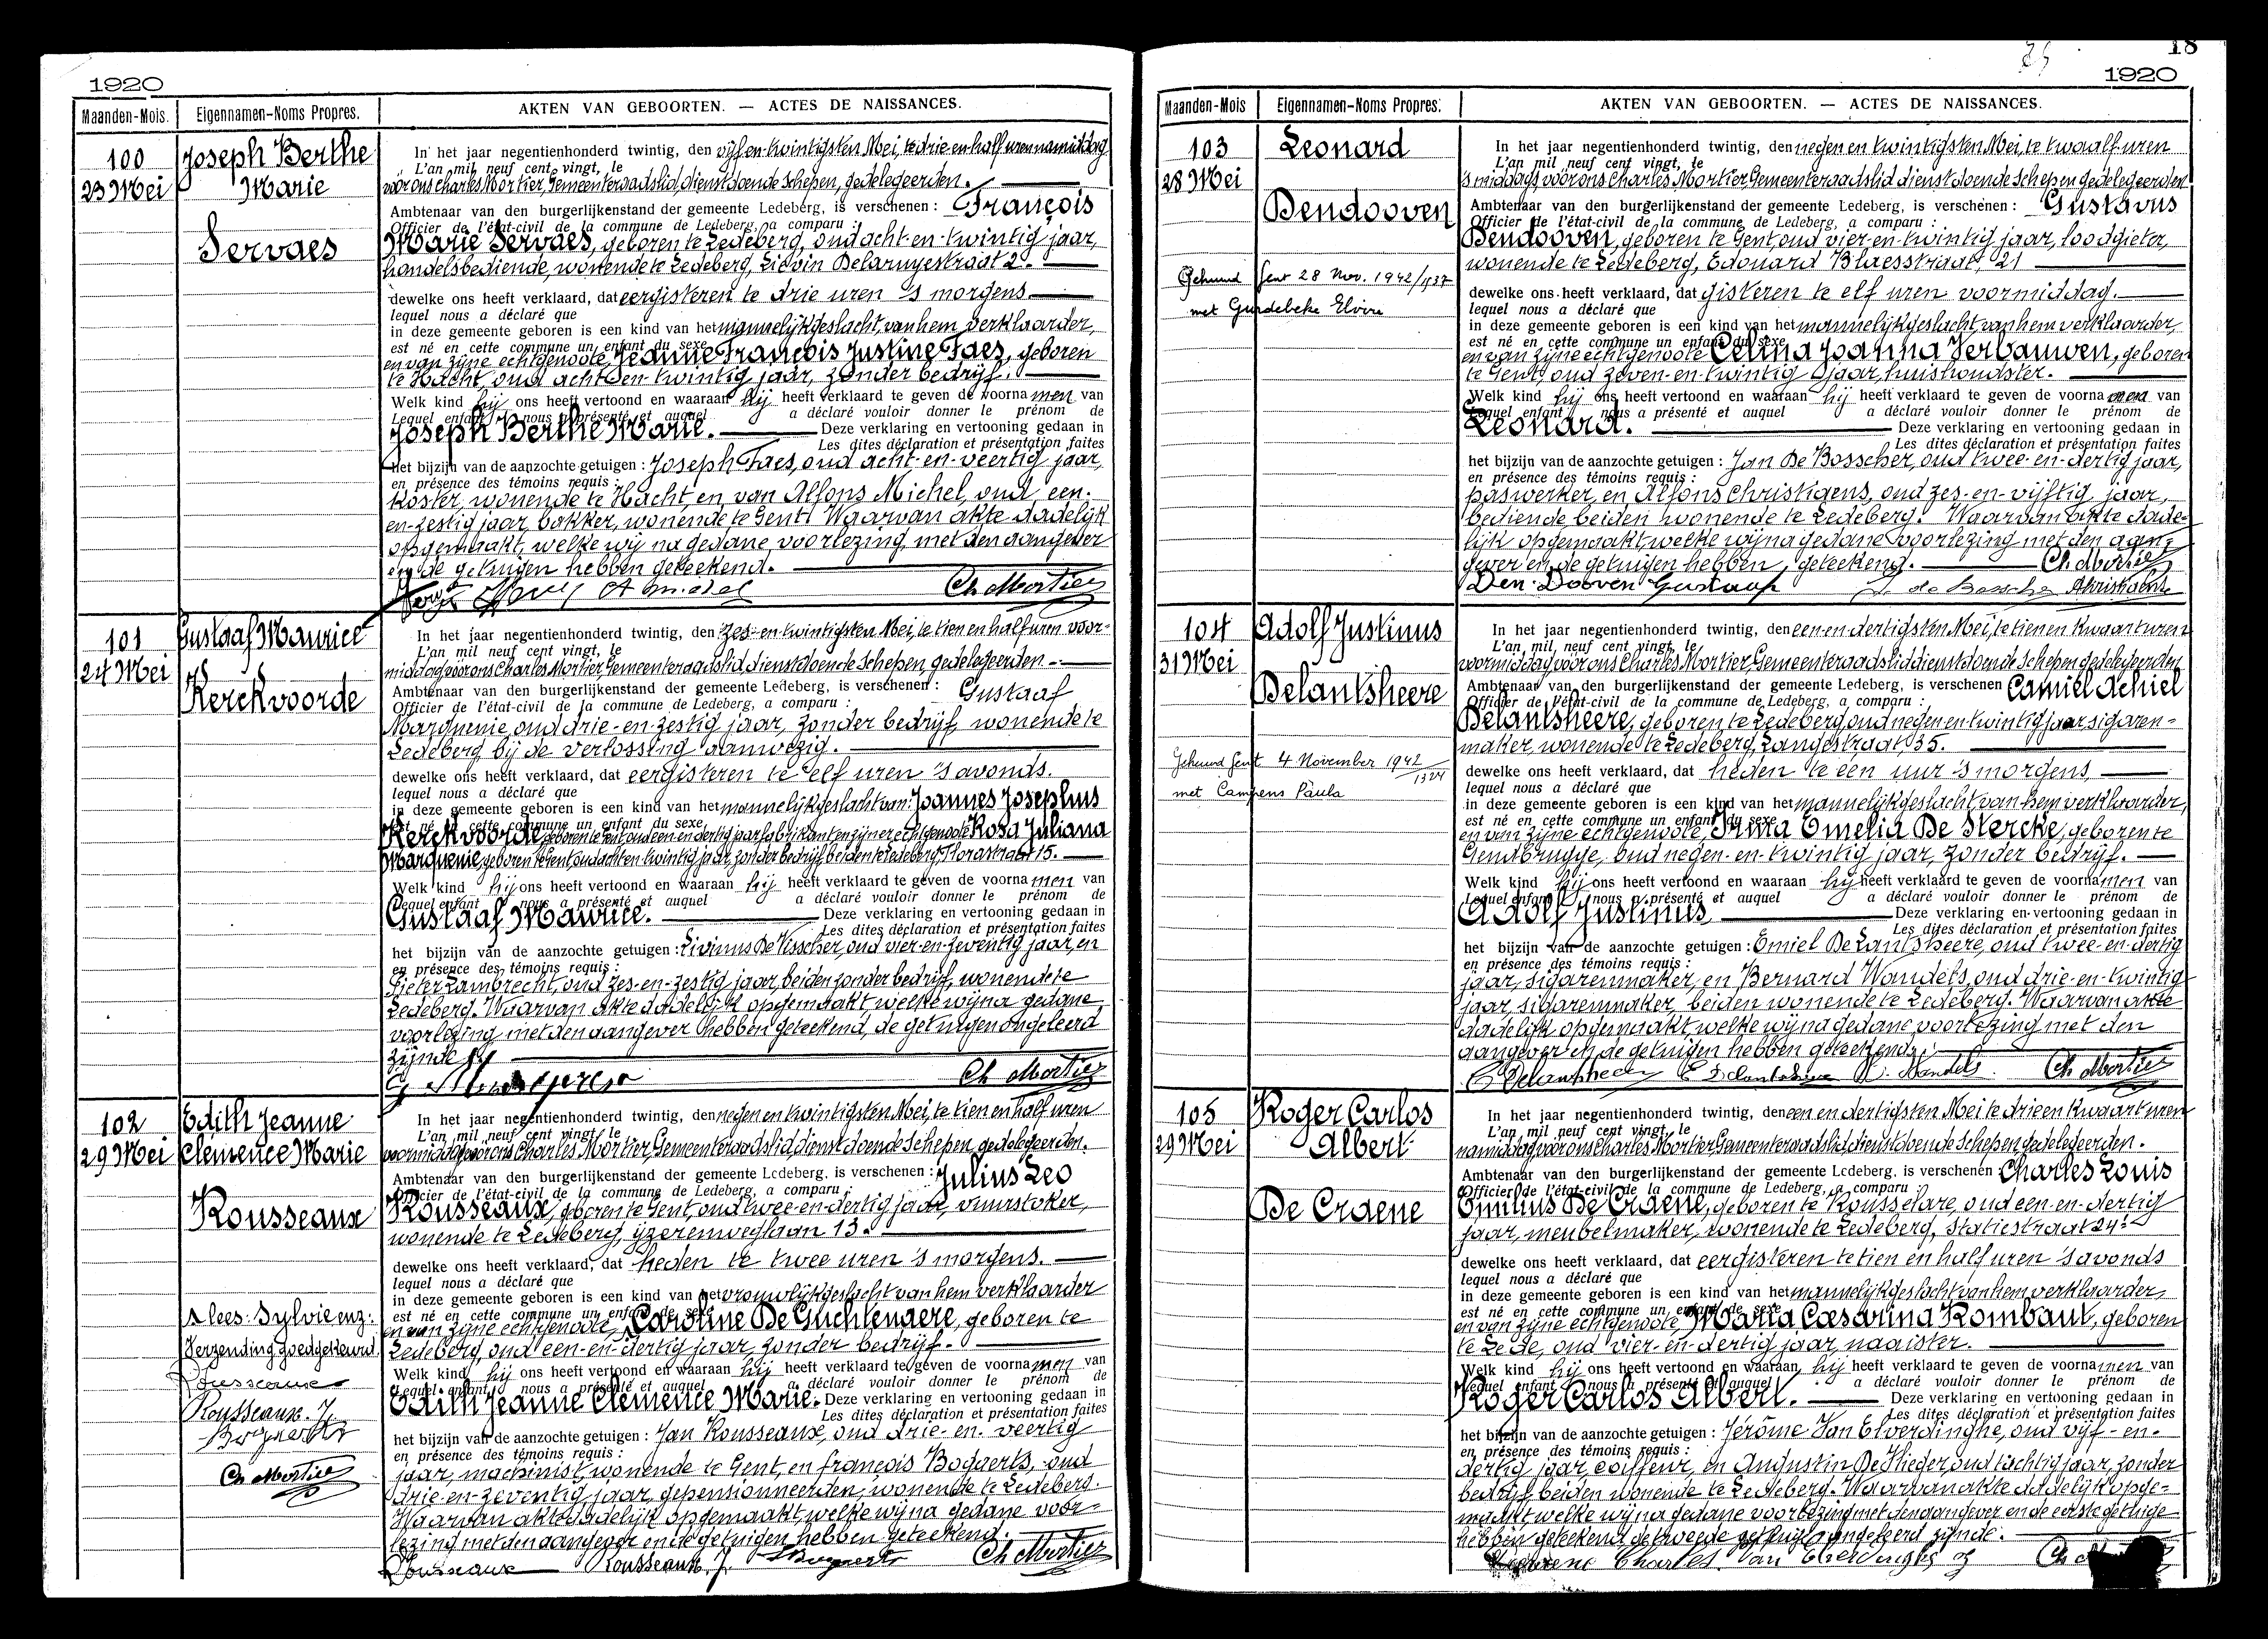 1920
Maanden-Mois. Eigennamen-Noms Propres. AKTEN VAN GEBOORTEN. — ACTES DE NAISSANCES.
100
23 Mei
Joseph Berthe
Marie
Servaes
In het jaar negentienhonderd twintig, den vijf en twintigsten Mei, te drie en half uren namiddag
L'an mil neuf cent vingt, le
voor ons Charles Mortier, Gemeenteraadslid, dienstdoende Schepen, gedelegeerden.
Ambtenaar van den burgerlijkenstand der gemeente Ledeberg, is verschenen : François
Officier de l'état-civil de la commune de Ledeberg, a comparu :
Marie Servaes, geboren te Ledeberg, oud acht-en-twintig jaar,
handelsbediende, wonende te Ledeberg, Lievin Delaruyestraat 2.
dewelke ons heeft verklaard, dat eergisteren te drie uren 's morgens
lequel nous a déclaré que
in deze gemeente geboren is een kind van het mannelijk geslacht, van hem verklaarder,
est né en cette commune un enfant du sexe
en van zijne echtgenoote, Jeanne François Justine Faes, geboren
te Hacht, oud acht-en-twintig jaar, zonder bedrijf.
Welk kind hij ons heeft vertoond en waaraan hij heeft verklaard te geven de voornamen van
Lequel enfant nous a présenté et auquel a déclaré vouloir donner le prénom de
Joseph Berthe Marie. Deze verklaring en vertooning gedaan in
Les dites déclaration et présentation faites
het bijzijn van de aanzochte getuigen : Joseph Faes, oud acht-en-veertig jaar,
en présence des témoins requis :
koster, wonende te Hacht, en van Alfons Michel, oud een-
en-zestig jaar, bakker, wonende te Gent. Waarvan akte dadelijk
opgemaakt, welke wij na gedane voorlezing, met den aangever
en de getuigen hebben geteekend.
A Michel Ch Mortier
101
24 Mei
Gustaaf Maurice
Kerckvoorde
In het jaar negentienhonderd twintig, den zes-en-twintigsten Mei, te tien en half uren voor-
L'an mil neuf cent vingt, le
middag voor ons Charles Mortier, Gemeenteraadslid, dienstdoende Schepen, gedelegeerden
Ambtenaar van den burgerlijkenstand der gemeente Ledeberg, is verschenen : Gustaaf
Officier de l'état-civil de la commune de Ledeberg, a comparu :
Marquenie, oud drie-en-zestig jaar, zonder bedrijf, wonende te
Ledeberg, bij de verlossing aanwezig.
dewelke ons heeft verklaard, dat eergisteren te elf uren 's avonds.
lequel nous a déclaré que
in deze gemeente geboren is een kind van het mannelijk geslacht van: Joannes Josephus
est né en cette commune un enfant du sexe
Kerckvoorde, geboren te Gent, oud een en dertig jaar, fabrikant en zijner echtgenoote Rosa Juliana
Marquenie, geboren te Gent, oud acht en twintig jaar, zonder bedrijf, beiden te Ledeberg, Florastraat 15.
Welk kind hij ons heeft vertoond en waaraan hij heeft verklaard te geven de voornamen van
Lequel enfant nous a présenté et auquel a déclaré vouloir donner le prénom de
Gustaaf Maurice. Deze verklaring en vertooning gedaan in
Les dites déclaration et présentation faites
het bijzijn van de aanzochte getuigen : Livinus De Visscher, oud vier-en-zeventig jaar, en
en présence des témoins requis :
Pieter Lambrecht, oud zes-en-zestig jaar, beiden zonder bedrijf, wonende te
Ledeberg. Waarvan akte dadelijk opgemaakt welke wij na gedane
voorlezing met den aangever hebben geteekend, de getuigen ongeleerd
zijnde
Ch Mortier
102
29 Mei
Edith Jeanne
Clemence Marie
Rousseaux
In het jaar negentienhonderd twintig, den negen en twintigsten Mei, te tien en half uren
L'an mil neuf cent vingt, le
voormiddag voor ons Charles Mortier, Gemeenteraadslid, dienstdoende Schepen, gedelegeerden.
Ambtenaar van den burgerlijkenstand der gemeente Ledeberg, is verschenen : Julius Leo
Officier de l'état-civil de la commune de Ledeberg, a comparu :
Rousseaux, geboren te Gent, oud twee-en-dertig jaar, vuurstoker,
wonende te Ledeberg, ijzerenweglaan 13.
dewelke ons heeft verklaard, dat heden te twee uren 's morgens.
lequel nous a déclaré que
in deze gemeente geboren is een kind van het vrouwlijk geslacht van hem verklaarder
est né en cette commune un enfant de sexe
en van zijne echtgenoote, Caroline De Guchtenaere, geboren te
Ledeberg, oud een-en-dertig jaar, zonder bedrijf.
Welk kind hij ons heeft vertoond en waaraan hij heeft verklaard te geven de voornamen van
Lequel enfant nous a présenté et auquel a déclaré vouloir donner le prénom de
Edith Jeanne Clemence Marie. Deze verklaring en vertooning gedaan in
Les dites déclaration et présentation faites
het bijzijn van de aanzochte getuigen : Jan Rousseaux, oud drie-en-veertig
en présence des témoins requis :
jaar, machinist, wonende te Gent, en françois Bogaerts, oud
drie-en-zeventig jaar, gepensionneerden, wonende te Ledeberg.
Waarvan akte dadelijk opgemaakt, welke wij na gedane voor-
lezing met den aangever en de getuigen hebben geteekend.
Rousseaux Rousseaux J. Bogaerts Ch Mortier
lees: Sylvie enz:
Verzending goedgekeurd.
Rousseaux
Rousseaux. J.
Bogaerts
Ch Mortier
18
1920
Maanden-Mois Eigennamen-Noms Propres. AKTEN VAN GEBOORTEN. — ACTES DE NAISSANCES.
103
28 Mei
Leonard
Dendooven
Gehuwd Gent 28 Nov. 1942/1537
met Gundebeke Elvire
In het jaar negentienhonderd twintig, den negen en twintigsten Mei, te twaalf uren
L'an mil neuf cent vingt, le
's middags, voor ons Charles Mortier Gemeenteraadslid dienstdoende Schepen gedelegeerden
Ambtenaar van den burgerlijkenstand der gemeente Ledeberg, is verschenen : Gustavus
Officier de l'état-civil de la commune de Ledeberg, a comparu :
Dendooven, geboren te Gent, oud vier-en-twintig jaar, loodgieter,
wonende te Ledeberg, Edouard Blaesstraat, 21
dewelke ons heeft verklaard, dat gisteren te elf uren voormiddag.
lequel nous a déclaré que
in deze gemeente geboren is een kind van het mannelijk geslacht, van hem verklaarder,
est né en cette commune un enfant du sexe
en van zijne echtgenoote Celina Joanna Verbauwen, geboren
te Gent, oud zeven-en-twintig jaar, huishoudster.
Welk kind hij ons heeft vertoond en waaraan hij heeft verklaard te geven de voornamen van
Lequel enfant nous a présenté et auquel a déclaré vouloir donner le prénom de
Leonard. Deze verklaring en vertooning gedaan in
Les dites déclaration et présentation faites
het bijzijn van de aanzochte getuigen : Jan De Bosscher, oud twee-en-dertig jaar,
en présence des témoins requis :
paswerker, en Alfons Christiaens, oud zes-en-vijftig jaar,
bediende, beiden wonende te Ledeberg. Waarvan akte dade-
lijk opgemaakt, welke wij na gedane voorlezing met den aan-
gever en de getuigen hebben geteekend. Ch Mortier
Den Dooven Gustaaf J. de Bosscher Christiaens
104
31 Mei
Adolf Justinus
Delantsheere
Gehuwd Gent 4 November 1942/1324
met Campens Paula
In het jaar negentienhonderd twintig, den een en dertigsten Mei, te tien en kwaart uren
L'an mil neuf cent vingt, le
voormiddag voor ons Charles Mortier Gemeenteraadslid dienstdoende Schepen gedelegeerden
Ambtenaar van den burgerlijkenstand der gemeente Ledeberg, is verschenen Camiel Achiel
Officier de l'état-civil de la commune de Ledeberg, a comparu :
Delantsheere, geboren te Ledeberg, oud negen en twintig jaar, sigaren-
maker, wonende te Ledeberg, Langestraat, 35.
dewelke ons heeft verklaard, dat heden te een uur 's morgens
lequel nous a déclaré que
in deze gemeente geboren is een kind van het mannelijk geslacht, van hem verklaarder,
est né en cette commune un enfant du sexe
en van zijne echtgenoote, Irma Emelia De Stercke, geboren te
Gendbrugge, oud negen-en-twintig jaar, zonder bedrijf.
Welk kind hij ons heeft vertoond en waaraan hij heeft verklaard te geven de voornamen van
Lequel enfant nous a présenté et auquel a déclaré vouloir donner le prénom de
Adolf Justinus Deze verklaring en vertooning gedaan in
Les dites déclaration et présentation faites
het bijzijn van de aanzochte getuigen : Emiel De Lantsheere, oud twee-en-dertig
en présence des témoins requis :
jaar, sigarenmaker, en Bernard Wandels, oud drie-en-twintig
jaar, sigarenmaker, beiden wonende te Ledeberg. Waarvan akte
dadelijk opgemaakt, welke wij na gedane voorlezing met den
aangever en de getuigen hebben geteekend.
C Delantsheere E Delantsheere B. Wandels Ch Mortier
105
29 Mei
Roger Carlos
Albert
De Craene
In het jaar negentienhonderd twintig, den een en dertigsten Mei te drie en kwaart uren
L'an mil neuf cent vingt, le
namiddag voor ons Charles Mortier, Gemeenteraadslid, dienstdoende Schepen, gedelegeerden.
Ambtenaar van den burgerlijkenstand der gemeente Ledeberg, is verschenen Charles Louis
Officier de l'état-civil de la commune de Ledeberg, a comparu :
Emilius De Craene, geboren te Rousselare, oud een-en-dertig
jaar, meubelmaker, wonende te Ledeberg, Statiestraat 24.
dewelke ons heeft verklaard, dat eergisteren te tien en half uren 's avonds
lequel nous a déclaré que
in deze gemeente geboren is een kind van het mannelijk geslacht van hem verklaarder,
est né en cette commune un enfant de sexe
en van zijne echtgenoote, Maria Cæsarina Rombaut, geboren
te Lede, oud vier-en-dertig jaar, naaister.
Welk kind hij ons heeft vertoond en waaraan hij heeft verklaard te geven de voornamen van
Lequel enfant nous a présenté et auquel a déclaré vouloir donner le prénom de
Roger Carlos Albert. Deze verklaring en vertooning gedaan in
Les dites déclaration et présentation faites
het bijzijn van de aanzochte getuigen : Jérôme Van Elverdinghe, oud vijf-en-
en présence des témoins requis :
dertig jaar, coiffeur, en Augustin De Vlieger, oud tachtig jaar, zonder
bedrijf, beiden wonende te Ledeberg. Waarvan akte dadelijk opge-
maakt, welke wij na gedane voorlezing met den aangever en de eerste getuige
hebben geteekend, de tweede getuige ongeleerd zijnde.
Decraene Charles. Van Elverdinghe